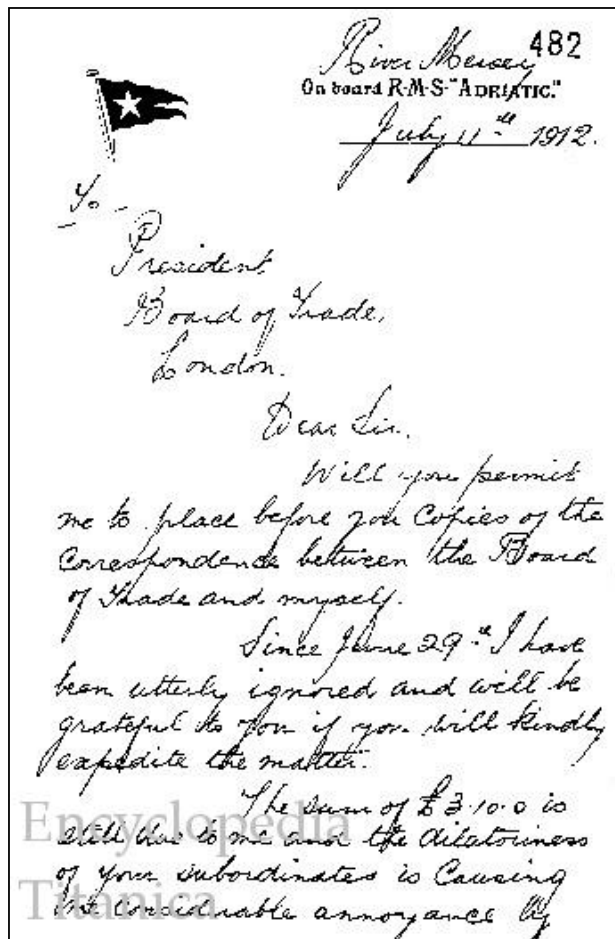 482
River Mersey
On board R·M·S·"ADRIATIC."
July 11th 1912.
To -
President
Board of Trade,
London.
Dear Sir.
Will you permit
me to place before you Copies of the
Correspondence between the Board
of Trade and myself.
Since June 29th I have
been utterly ignored and will be
grateful to you if you will kindly
expedite the matter.
The sum of £3·10·0 is
still due to me and the dilatoriness
of your subordinates is Causing
me considerable annoyance by
Encyclopedia
Titanica